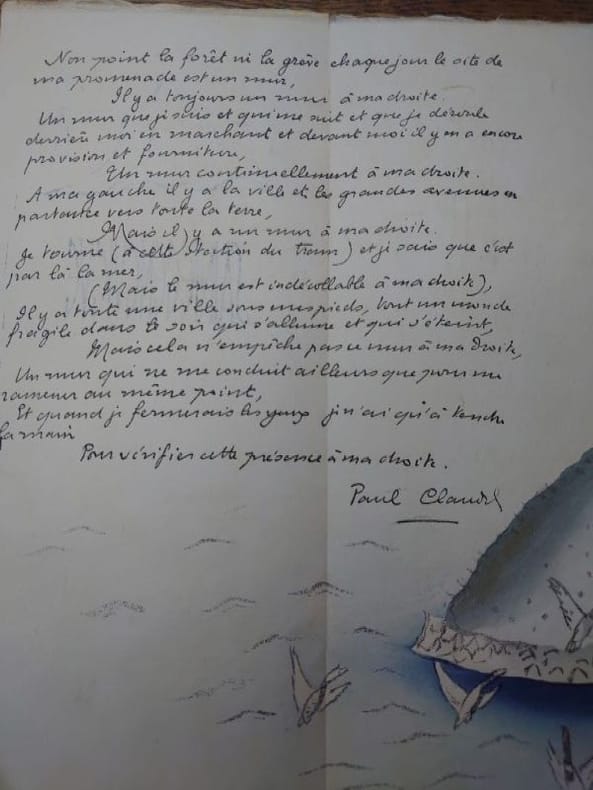 Non point la forêt ni la grève chaque jour le site de
ma promenade est un mur,
Il y a toujours un mur à ma droite.
Un mur que je suis et qui me suit et que je déroule
derrière moi en marchant et devant moi il y en a encore
provision et fourniture,
Un mur continuellement à ma droite.
A ma gauche il y a la ville et les grandes avenues en
partance vers toute la terre,
Mais il y a un mur à ma droite.
Je tourne (à cette station du Tram) et je sais que c'est
par là la mer,
(Mais le mur est indécollable à ma droite),
Il y a toute une ville sous mes pieds, tout un monde
fragile dans le soir qui s'allume et qui s'éteint,
Mais cela n'empêche pas ce mur à ma droite,
Un mur qui ne me conduit ailleurs que pour me
ramener au même point,
Et quand je fermerais les yeux je n'ai qu'à tendre
la main
Pour vérifier cette présence à ma droite.
Paul Claudel